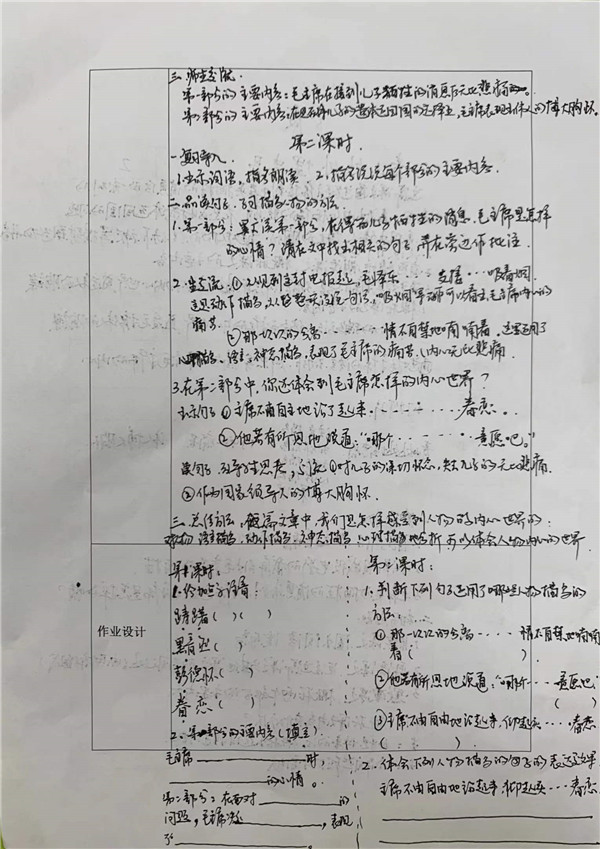 三、师生交流。
第一部分的主要内容：毛主席在接到儿子牺牲的消息后无比悲痛的。
第二部分的主要内容：在是否将儿子的遗体运回国的选择上，毛主席表现主伟人的博大胸怀。
第二课时
一、复习导入
1.出示词语，指名朗读 2、指名说说每个部分的主要内容。
二、品读句子，习描写人物的方法
1.第一部分：默读第一部分，在得知儿子牺牲的消息，毛主席是怎样
的心情？请在文中找出相关的句子，并在旁边作批注
2.生交流：①从收到这封电报起，毛泽东……支接……吸着烟
这是动作描写，从整整天没说一句话，“吸烟”等动作可以看出毛主席内心的
痛苦。
②那一次次的分离……情不自禁地喃喃着，这里运用了
心理描写、语言、神态描写，表现了毛主席的痛苦，内心无比悲痛
3.在第二部分中，你还体会到毛主席怎样的内心世界？
句子①主席不由自主地站了起来……眷恋。
②他若有所思地说道：“哪个……意愿吧。”
①对儿子的深切怀念，失去儿子的无比悲痛
②作为国家领导人的博大胸怀。
三、总结方法，概篇文章中，我们是怎样感受到人物的内心世界的：
语言描写，动作描写、神态描写、心理描写
作业设计
第一课时：
1.给加点字注音
踌躇（ ）（ ）
黯然（ ）
彭德怀（ ）
眷恋（ ）
2、第一部分的主要内容（填空）
毛主席________时，
________的心情。
第二部分：在面对________的
问题，毛主席________，表现
了________。
第二课时：
1.判断下列句子运用了哪些人物描写的
方法：
①那一次次的分离……情不自禁地喃喃
着（ ）
②他若有所思地说道：“哪个……意愿吧”
（ ）
③主席不由自由地站起来，仰起头……眷恋
（ ）
2.体会下列人物描写的句子的表达效果
主席不由自由地站起来，仰起头……眷恋